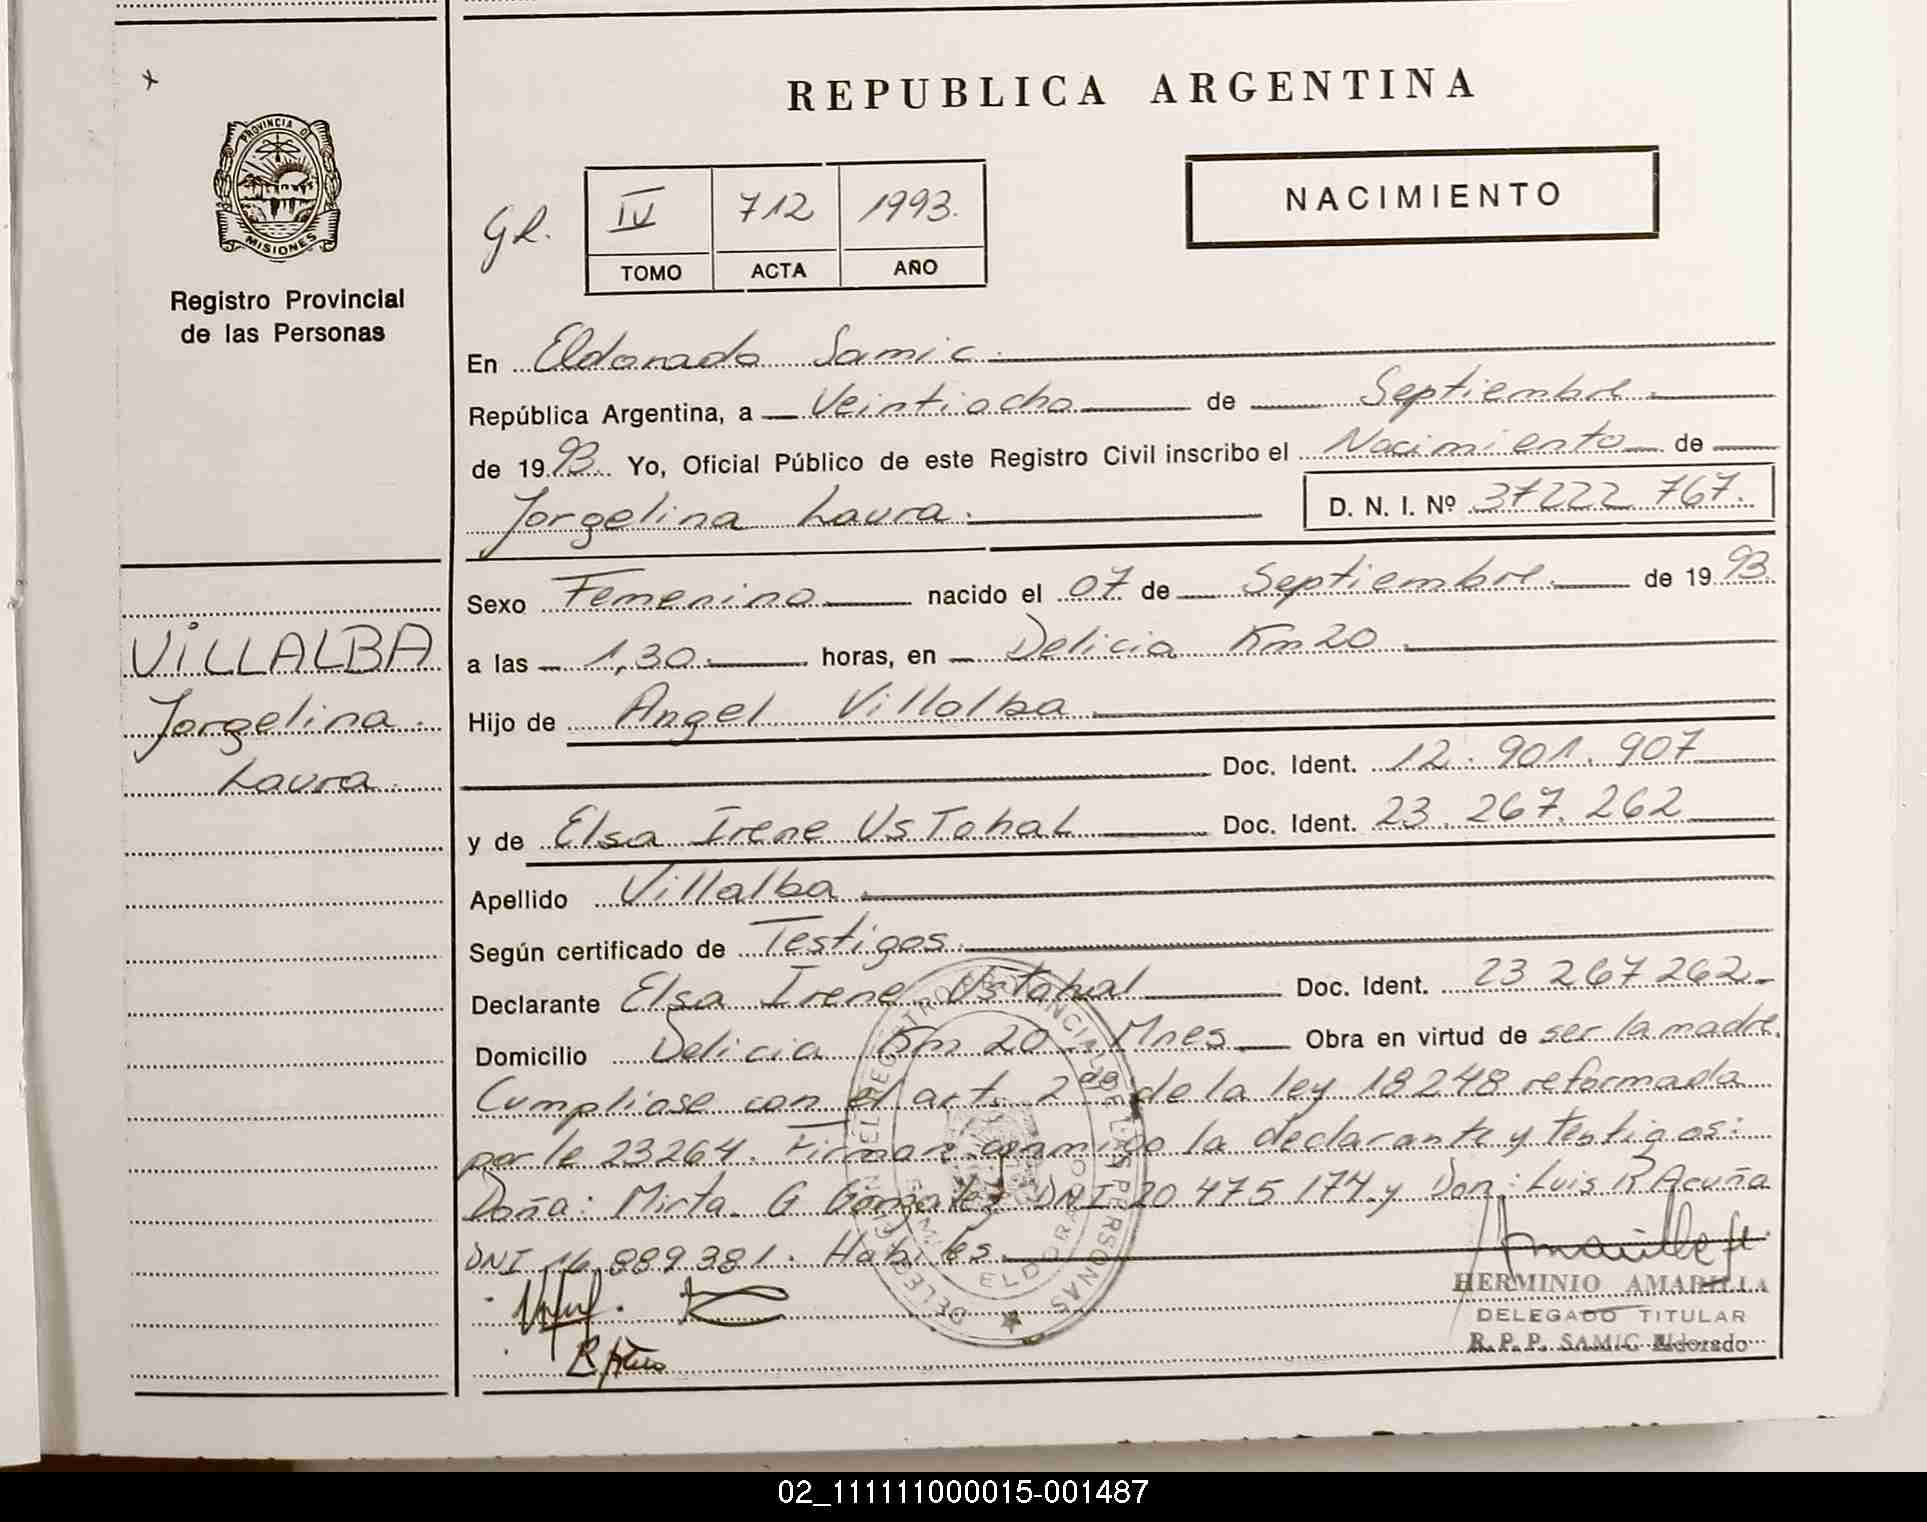 REPUBLICA ARGENTINA
PROVINCIA D
MISIONES
Registro Provincial
de las Personas
GR.
IV 712 1993.
TOMO ACTA AÑO
NACIMIENTO
En Eldorado Samic.
República Argentina, a Veintiocho de Septiembre.
de 1993. Yo, Oficial Público de este Registro Civil inscribo el Nacimiento de
Jorgelina Laura. D. N. I. Nº 37222 767.
VILLALBA
Jorgelina.
Laura.
Sexo Femenino nacido el 07 de Septiembre. de 1993.
a las 1,30. horas, en Delicia Km 20.
Hijo de Angel Villalba.
Doc. Ident. 12.901.907
y de Elsa Irene UsTohal Doc. Ident. 23.267.262
Apellido Villalba.
Según certificado de Testigos.
Declarante Elsa Irene UsTohal Doc. Ident. 23 267 262.-
Domicilio Delicia Km 20 - Mnes. Obra en virtud de ser la madre.
Cumpliose con el art. 2do de la ley 18248 reformada
por le 23264. Firman conmigo la declarante y testigos:
Doña: Mirta G Gomalez DNI 20 475 174 y Don: Luis R Acuña
DNI 16 889 381. Habiles.
HERMINIO AMARILLA
DELEGADO TITULAR
R. P. P. SAMIC Eldorado
ELDORADO
02_111111000015-001487